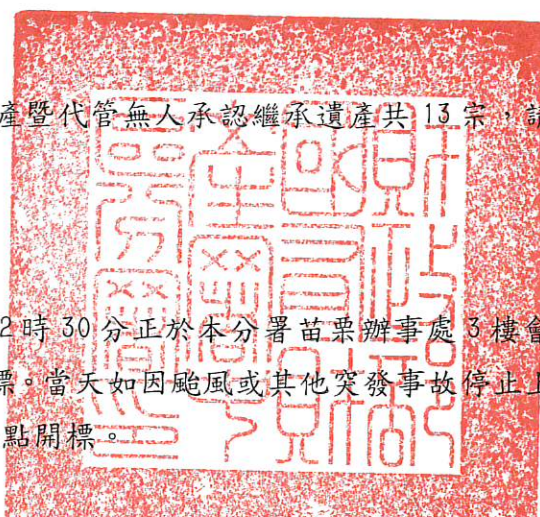 產暨代管無人承認繼承遺產共 13 宗，請
2 時 30 分正於本分署苗栗辦事處 3 樓會
標。當天如因颱風或其他突發事故停止上
點開標。